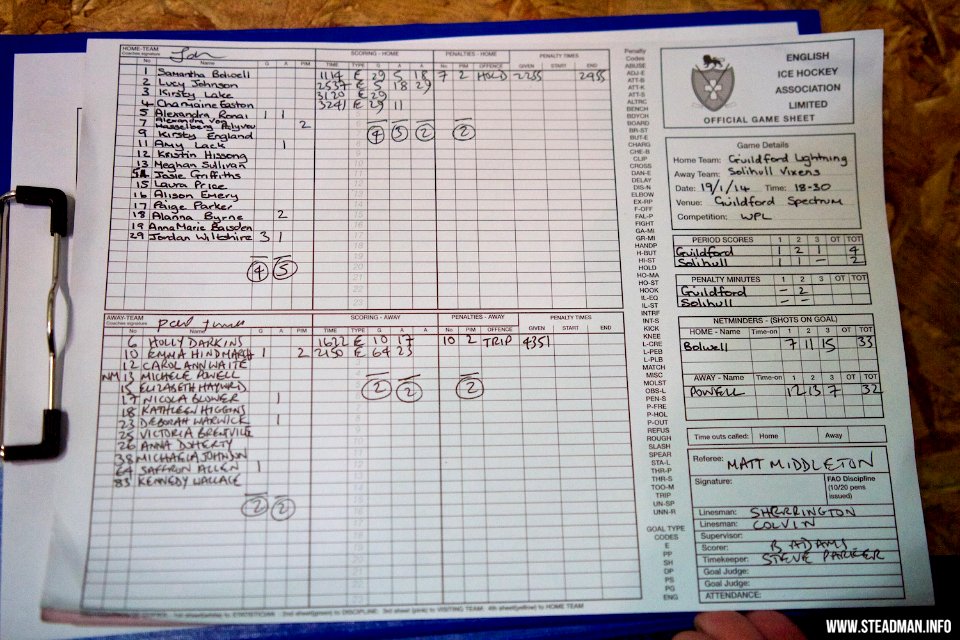 HOME-TEAM
Coaches signature
SCORING - HOME
PENALTIES - HOME
PENALTY TIMES
No Name G A PIM TIME TYPE G A A No PIM OFFENCE GIVEN START END
1 Samantha Bolwell 1114 E 29 5 18 7 2 HOLD 2255 2455
2 Lucy Johnson 2537 E 5 18 29
3 Kirsty Lake 3120 E 29
4 Charmaine Easton 3241 E 29 11
5 Alexandra Ronai 1 1
7 Alexandra von Hasselberg Polyrou 2
9 Kirsty England 4 5 2 2
11 Amy Lack 1
12 Kristin Hissong
13 Meghan Sullivan
14 Josie Griffiths
15 Laura Price
16 Alison Emery
17 Paige Parker
18 Alanna Byrne 2
19 AnnaMarie Baisden
29 Jordan Wiltshire 3 1
4 5
AWAY-TEAM
Coaches signature
SCORING - AWAY
PENALTIES - AWAY
PENALTY TIMES
No Name G A PIM TIME TYPE G A A No PIM OFFENCE GIVEN START END
6 HOLLY DARKINS 1622 E 10 17 10 2 TRIP 4351
10 EMMA HINDMARSH 1 2 2150 E 64 23
12 CAROL ANN WAITE
NM 13 MICHELE POWELL
15 ELIZABETH HAYWRD 2 2 2
17 NICOLA BLOWER 1
18 KATHLEEN HIGGINS
23 DEBORAH WARWICK 1
25 VICTORIA GREVILLE
26 ANNA DOHERTY
38 MICHAELA JOHNSON
64 SAFFRON ALLEN 1
83 KENNEDY WALLACE
2 2
1st sheet(white) to STATISTICIAN 2nd sheet(green) to DISCIPLINE 3rd sheet (pink) to VISITING TEAM 4th sheet(yellow) to HOME TEAM
Penalty
Codes
ABUSE
ADJ-E
ATT-B
ATT-K
ATT-S
ALTRC
BENCH
BDYCH
BOARD
BR-ST
BUT-E
CHARG
CHE-B
CLIP
CROSS
DAN-E
DELAY
DIS-N
ELBOW
EX-RP
F-OFF
FAL-P
FIGHT
GA-MI
GR-MI
HANDP
H-BUT
HI-ST
HOLD
HO-MA
HO-ST
HOOK
IL-EQ
IL-ST
INTRF
INT-S
KICK
KNEE
L-CRE
L-PEB
L-PLB
MATCH
MISC
MOLST
OBS-L
PEN-S
P-FRE
P-HOL
P-OUT
REFUS
ROUGH
SLASH
SPEAR
STA-L
THR-P
THR-S
TOO-M
TRIP
UN-SP
UNN-R
GOAL TYPE
CODES
E
PP
SH
DP
PS
PG
ENG
ENGLISH
ICE HOCKEY
ASSOCIATION
LIMITED
OFFICIAL GAME SHEET
Game Details
Home Team: Guildford Lightning
Away Team: Solihull Vixens
Date: 19/1/14 Time: 18-30
Venue: Guildford Spectrum
Competition: WPL
PERIOD SCORES 1 2 3 OT TOT
Guildford 1 2 1 4
Solihull 1 1 - 2
PENALTY MINUTES 1 2 3 OT TOT
Guildford - 2
Solihull - -
NETMINDERS - (SHOTS ON GOAL)
HOME - Name Time-on 1 2 3 OT TOT
Bolwell 7 11 15 33
AWAY - Name Time-on 1 2 3 OT TOT
POWELL 12 13 7 32
Time outs called: Home Away
Referee: MATT MIDDLETON
Signature: FAO Discipline
(10/20 pens
issued)
Linesman: SHERRINGTON
Linesman: COLVIN
Supervisor:
Scorer: B ADAMS
Timekeeper: STEVE PARKER
Goal Judge:
Goal Judge:
ATTENDANCE:
WWW.STEADMAN.INFO